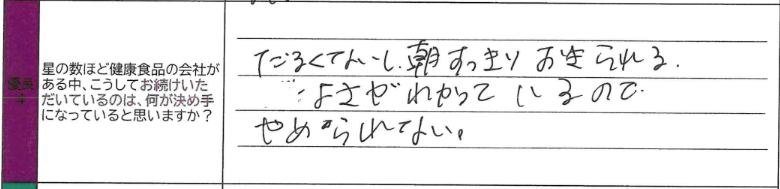 優良
4
星の数ほど健康食品の会社が
ある中、こうしてお続けいた
だいているのは、何が決め手
になっていると思いますか?
だるくてないし、朝すっきりおきられる.
よさがわかっているので
やめられない。